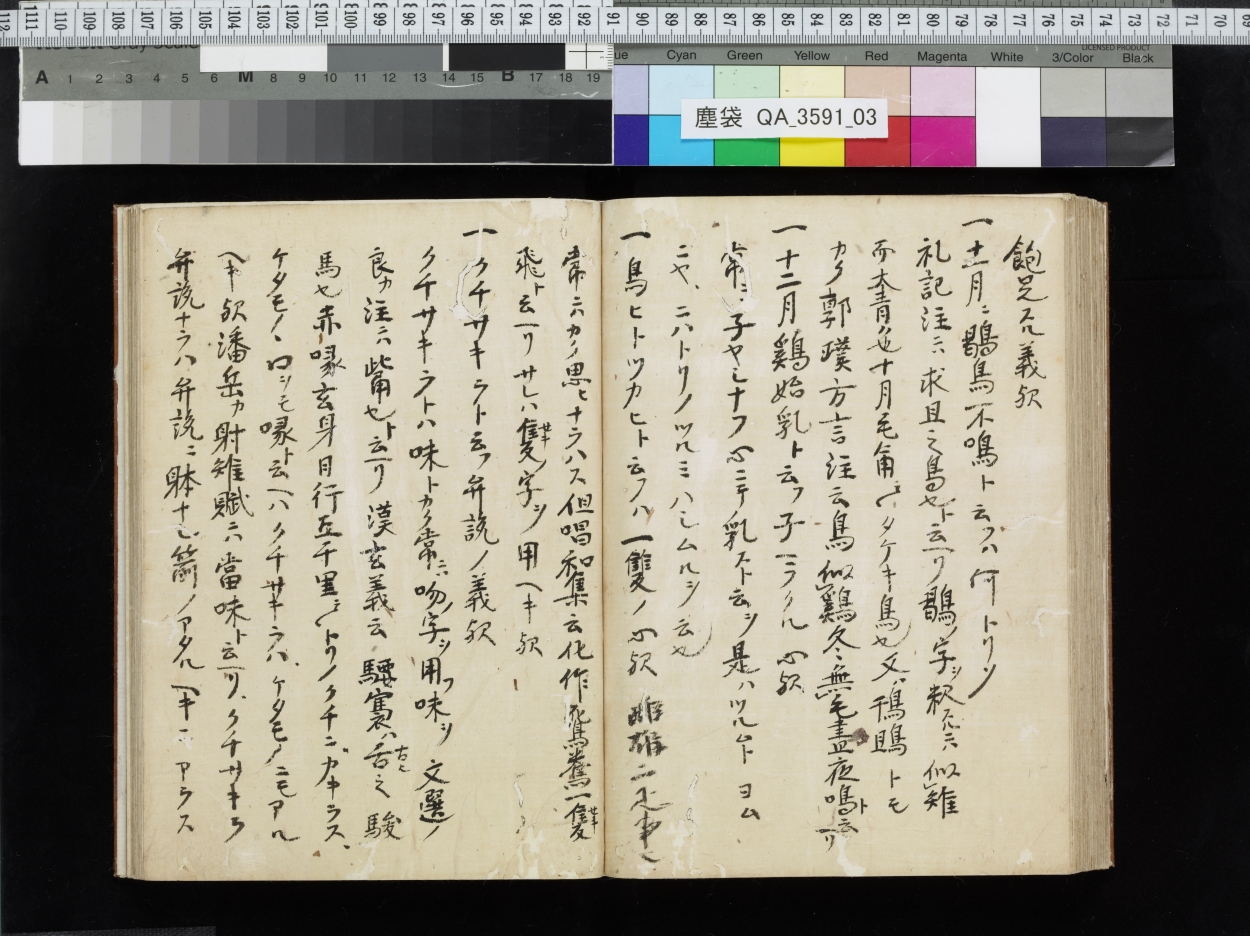 塵袋 QA_3591_03
飽足スル義歟
一十一月ニ鶡鳥不鳴ト云フハ何トリソ
礼記注ニハ求旦之鳥也ト云ヘリ鶡ノ字ヲ釈スルニハ似雉
而大青色十月毛角アリタケキ鳥也又ハ鶡鴠トモ
カク郭璞方言注云鳥似鶏冬無毛昼夜鳴ト云ヘリ
一十二月鶏始乳ト云フ子ヲウクル心歟
常ニハ子ヤシナフ心ニテ乳ストス云ヲ是ハツルムトヨム
ニヤ、ニハトリノツルミハシムルヲ云也
一鳥ヒトツカヒト云フハ一雙ノ心歟 雌雄二疋事也
常ニハカク思ヒナラハス但唱和集云化作鴛鴦一隻
飛ト云ヘリサレハ隻ノ字ヲ用ヘキ歟
一クチサキラト云フ弁説ノ義歟
クチサキラトハ味トカク常ニハ吻ノ字ヲ用フ味ヲ文選ノ
良カ注ニハ觜也ト云ヘリ漢玄義云騕褭ハ古之駿
馬也赤喙玄身日行五千里トリノクチニカキラス、
ケタモノヽ口ヲモ喙ト云ヘハクチサキラハ、ケタモノニモアル
ヘキ歟潘岳カ射雉賦ニハ當味ト云ヘリ、クチサキラ
弁説ナラハ弁説ニ躰ナシ箭ノアタルヘキニアラス